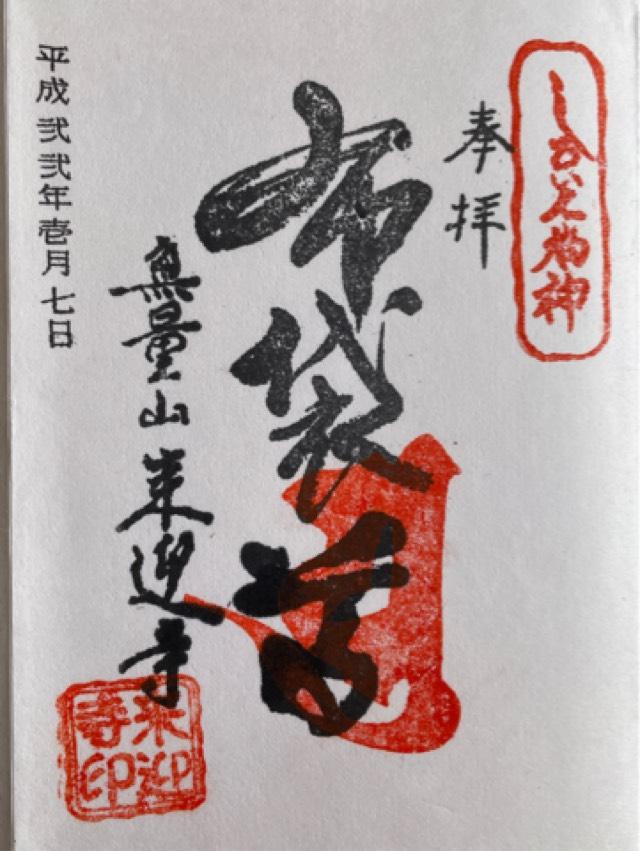 しろい七福神
奉拝
布袋尊
無量山来迎寺
平成弐弐年壱月七日
来迎
寺印